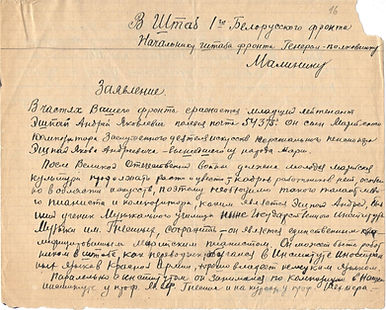 16
В Штаб 1го Белорусского фронта
Начальнику штаба фронта Генерал-полковнику
Малинину
Заявление.
В частях Вашего фронта сражается младший лейтенант
Эшпай Андрей Яковлевич полевая почта 54375. он сын Марийского
композитора Заслуженного деятеля искусств персонального пенсионера
Эшпая Якова Андреевича – у народа Мари.
После Великой Отечественной войны должна молодая марийская
культура продолжать расти и цвести, кадров работников нет особен-
но в области искусств, поэтому необходимо такого талантливо-
го пианиста и композитора, каким является Эшпай Андрей,
ученик Музыкального училища ныне Государственного Института
Музыки им. Гнесиных, сохранить – он является единственным
марийским пианистом. Он может быть работ-
ником в штабе, как переводчик обучался в Институте Иностран-
ных языков Красной Армии, хорошо владеет немецким языком.
Параллельно с институтом он занимался по композиции в
у проф. Гнесина и на курсах у проф.